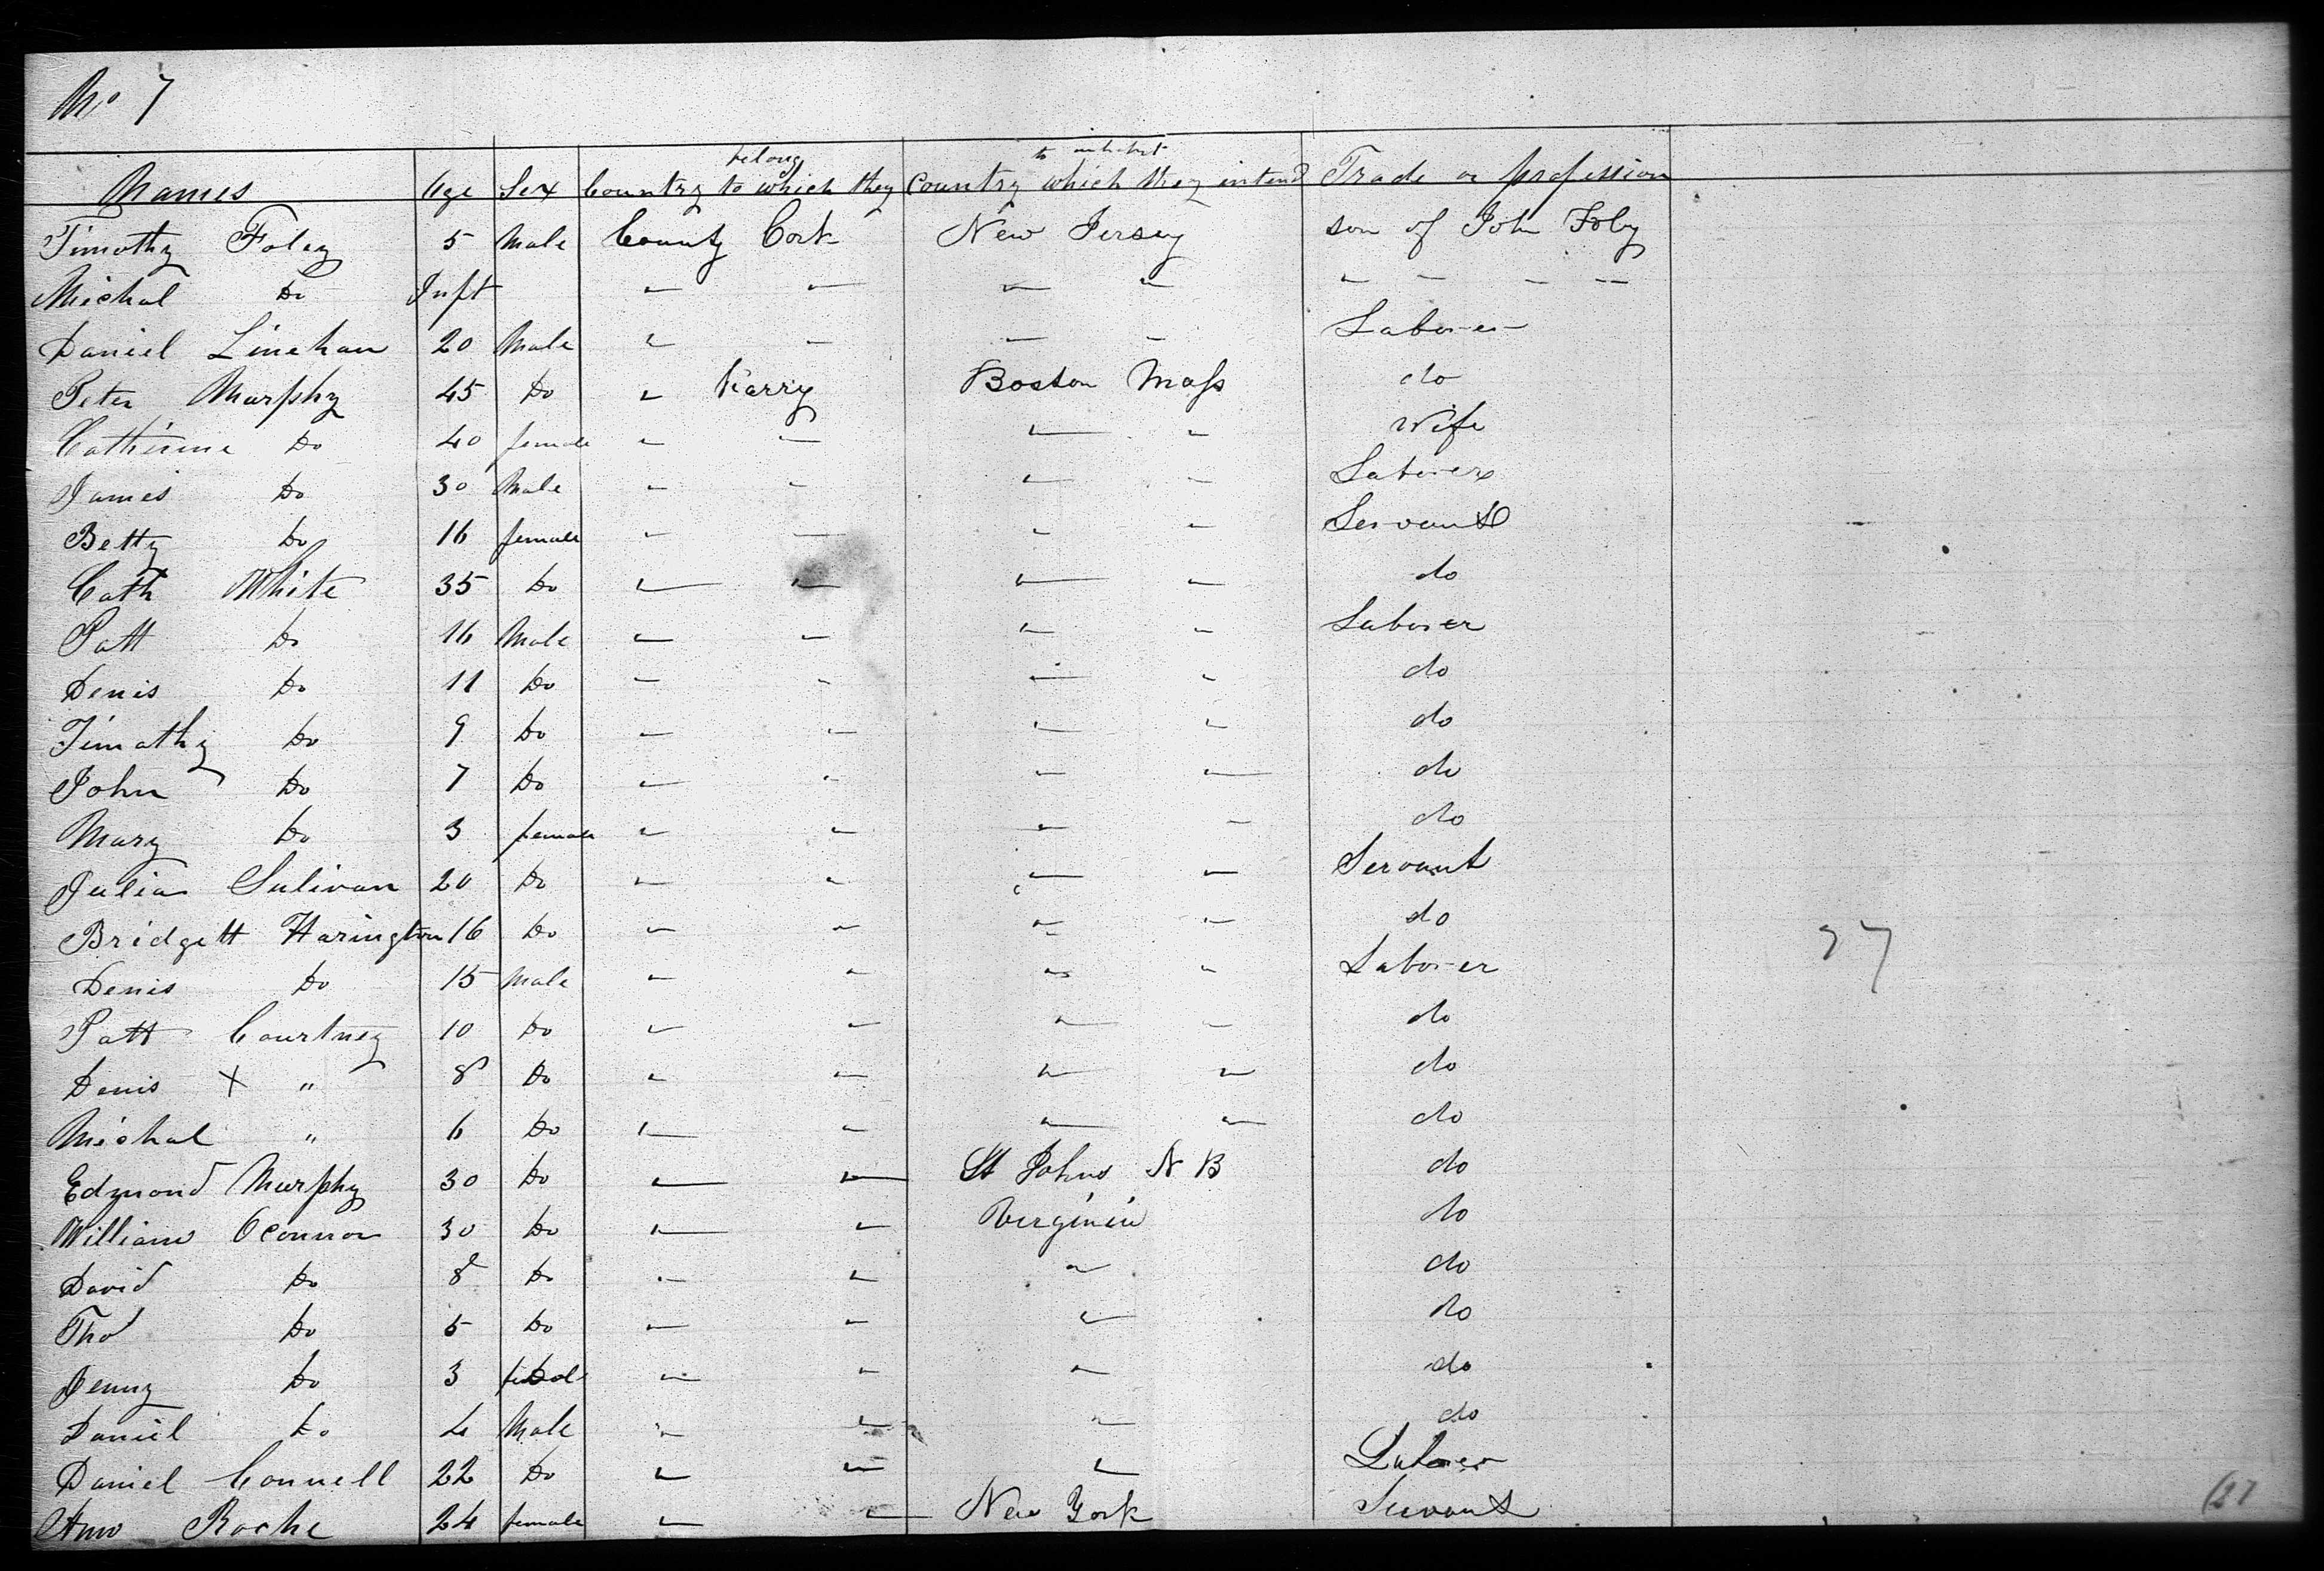 No 7
Names Age Sex Country to which they belong Country which they intend to inhabit Trade or profession
Timothy Foley 5 Male County Cork New Jersey son of John Foley
Michal Do Inft " " " " " " " "
Daniel Linehan 20 Male " " " " Laborer
Peter Murphy 45 Do " Karry Boston Mass do
Catherine Do 40 female " " " " Wife
James Do 30 Male " " " " Laborer
Betty Do 16 female " " " " Servant
Cath White 35 Do " " " " do
Patt Do 16 Male " " " " Laborer
Denis Do 11 Do " " " " do
Timothy Do 9 Do " " " " do
John Do 7 Do " " " " do
Mary Do 3 female " " " " do
Julia Sulivan 20 Do " " " " Servant
Bridgett Harington 16 Do " " " " do
Denis Do 15 Male " " " " Laborer
Patt Courtney 10 Do " " " " do
Denis X " 8 Do " " " " do
Michal " 6 Do " " " " do
Edmond Murphy 30 Do " " St Johns N B do
William OConnor 30 Do " " Virginia do
David Do 8 Do " " " do
Tho Do 5 Do " " " do
Jenny Do 3 " " " do
Daniel Do 4 Male " " " do
Daniel Connell 22 Do " " " Laborer
Ann Roche 24 female " " New York Servant
27